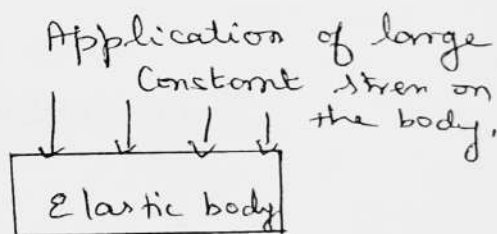 Application of large
Constant stress on
the body.
Elastic body